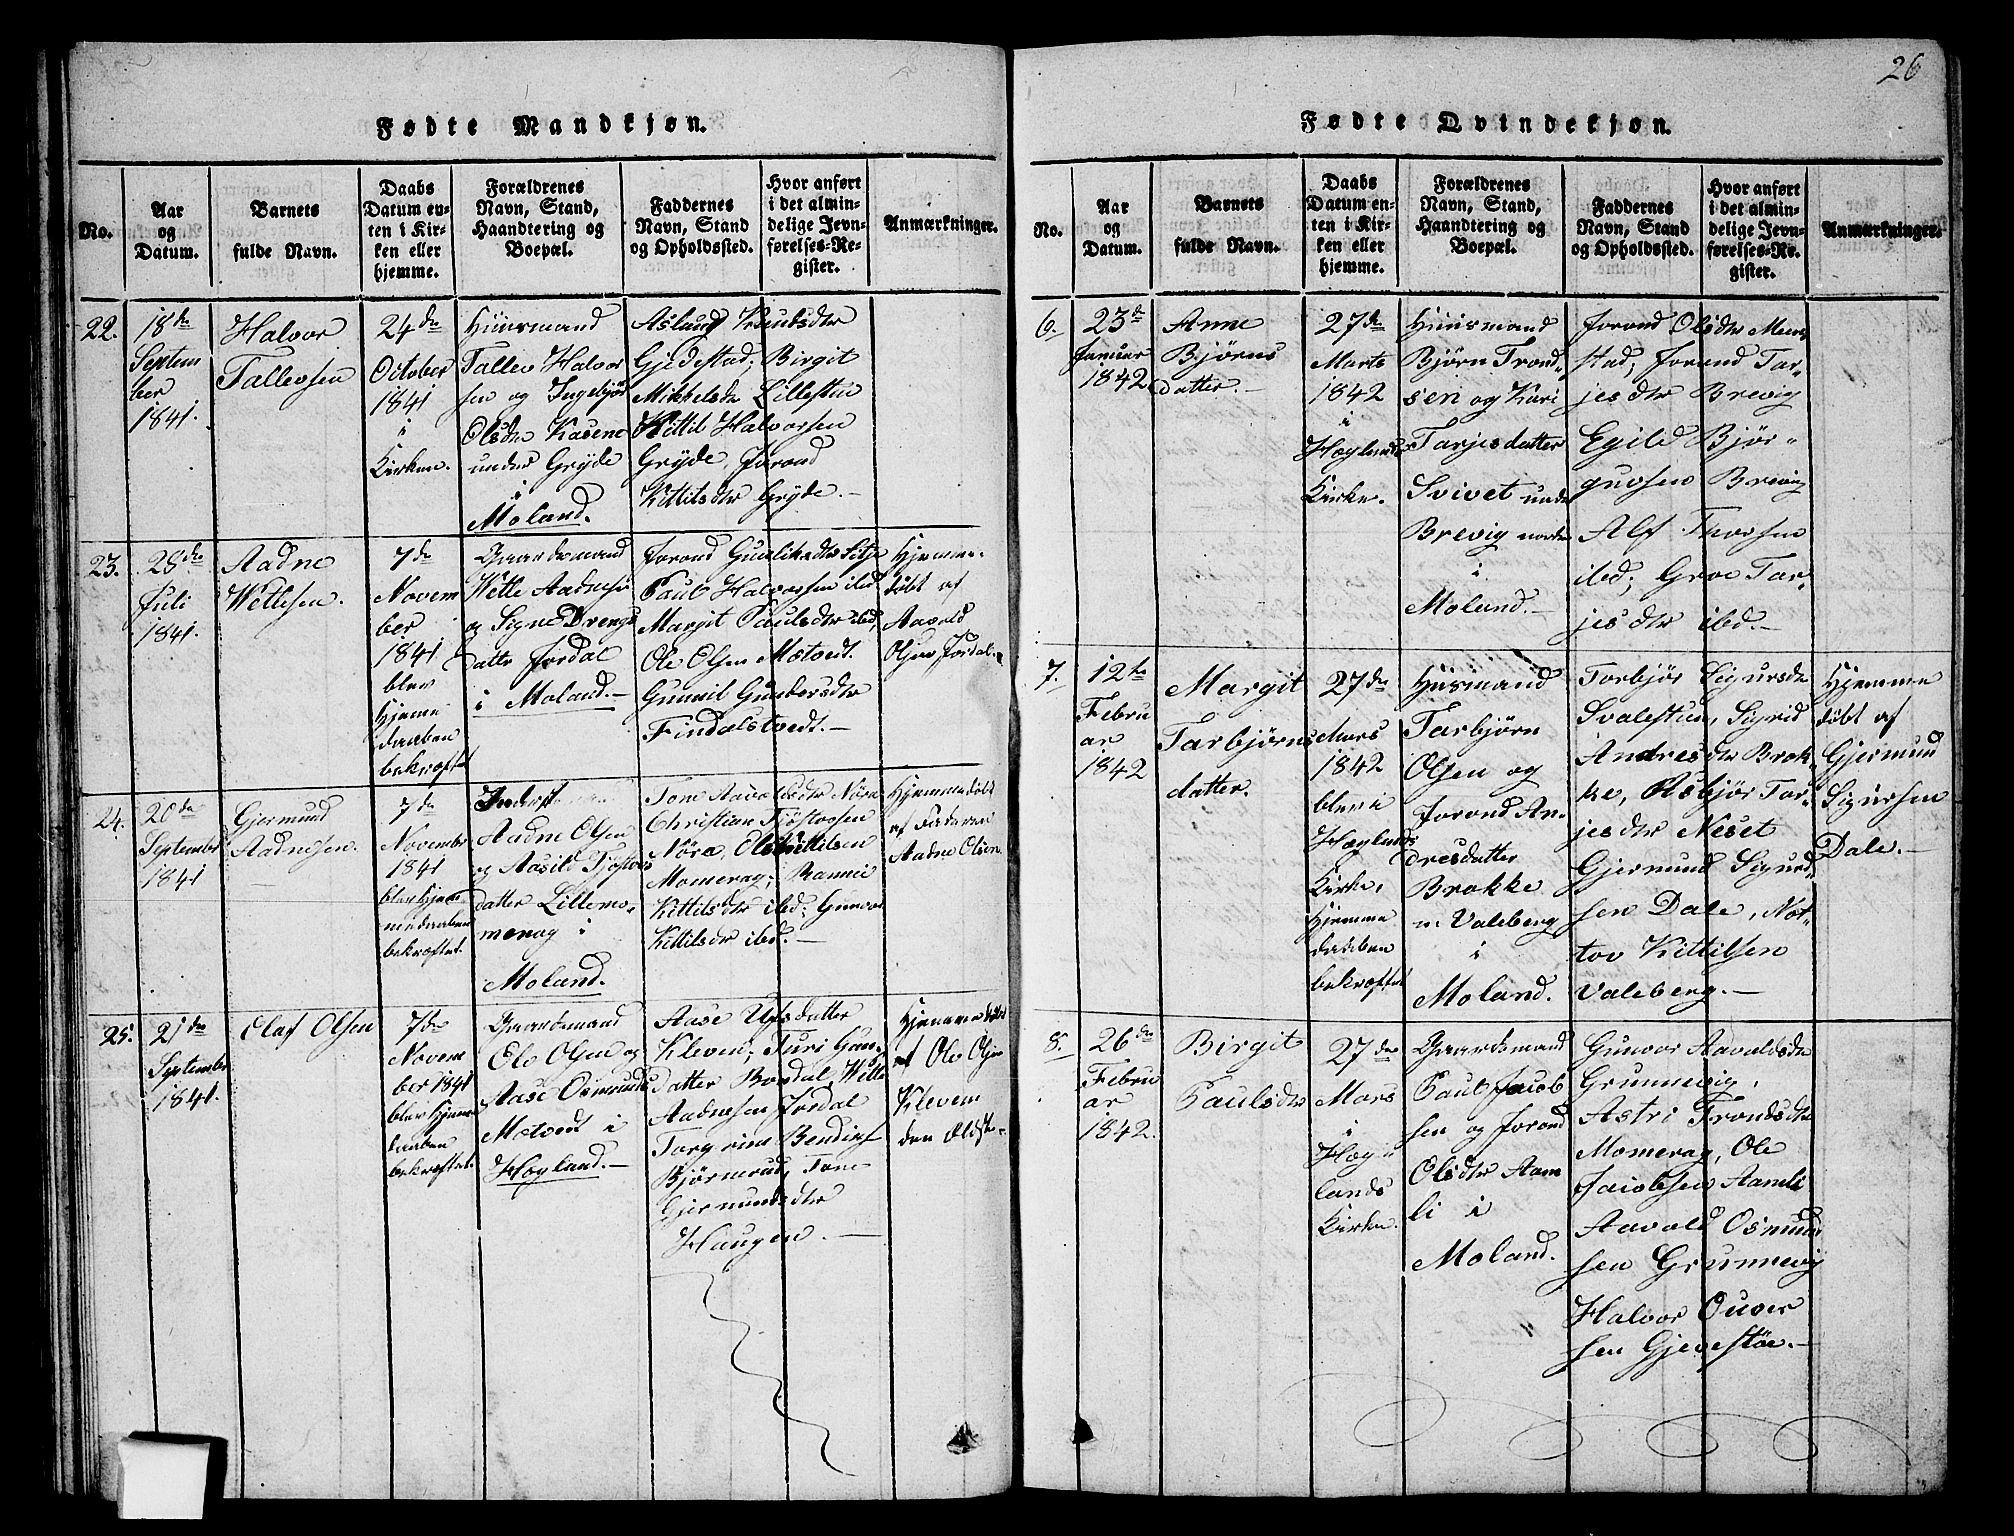 26
Fødte Mandkjøn.
No.
Aar
og
Datum.
Barnets
fulde Navn.
Daabs
Datum en-
ten i Kir-
ken eller
hjemme.
Forældrenes
Navn, Stand,
Haandtering og
Boepæl.
Faddernes
Navn, Stand
og Opholdssted.
Hvor anført
i det almin-
delige Jevn-
førelses-Re-
gister.
Anmærkninger.
22.
18de
Septem
ber
1841.
Halvor
Tallevsen
24de
October
1841
i
Kirken.
Huusmand
Tallev Halvor
sen og Ingebjør
Olsdr Kasene
under Gryde
i
Moland.
Aslaug Knudsdtr
Gjedestad; Birgit
Mikkelsdr Lillestue
Kittil Halvorsen
Gryde, Jorond
Kittilsdtr Gryde.—
23.
28de
Juli
1841.
Aadne
Wetlesen.
7de
Novem
ber
1841
blev
Hjemme
daaben
bekræftet
Gaardsmand
Wetle Aadnesen
og Signe Drengs
datter Jordal
i Moland.—
Jorond Gunliksdtr
Paul Halvorsen ibd.
Margit Paulsdtr ibd,
Ole Olsen Motvedt.
Gunnil Gunbersdtr
Findalstvedt.—
Hjemme-
døbt af
Aavald
Olsen Jordal.
24.
20de
September
1841
Gjermund
Aadnesen.
7de
November
1841
blev Hjem
medaaben
bekræftet.
Inderst
Aadne Olsen
og Aasild Tjøstovs
datter Lillemo-
merag i
Moland.
Tone Aavoldsdtr Nöra
Christian Tjöstovsen
Nöra, Ole Kittilsen
Momerag; Rannei
Kittilsdtr ibd; Gunvor
Kittilsdtr ibd.—
Hjemmedøbt
af Faderen
Aadne Olsen.
25.
21de
September
1841.
Olaf Olsen
7de
Novem
ber 1841
blev Hjem
daaben
bekræftet.
Gaardsmand
Ole Olsen og
Aase Osmunds
Motvedt i
Høgland.—
Aase Ufsdatter
Kleven; Turi
datter Bordal, Wetle
Aadnesen Jordal
Torgrim Bendix
Bjørnerud, Tone
Gjermundsdtr
Haugen.—
Hjemmedøbt
af Ole Olsen
Kleven
den Ældste.
Fødte Qvindekjøn.
No.
Aar
og
Datum.
Barnets
fulde Navn.
Daabs
Datum en-
ten i Kir-
ken eller
hjemme.
Forældrenes
Navn, Stand,
Haandtering og
Boepæl.
Faddernes
Navn, Stand
og Opholdssted.
Hvor anført
i det almin-
delige Jevn-
førelses-Re-
gister.
Anmærkninger.
6.
23de
Januar
1842
Anne
Bjørns
datter.—
27de
Marts
1842
i
Høglands
Kirke.
Huusmand
Bjørn Trond-
sen og Kari
Tarjesdatter
Svivet under
Brevig nordre
i
Moland.—
Jorond Olsdtr
stad; Jorond Tar-
jesdtr Brevig
Egild Bjør-
guvsen Brevig
Alf Thorsen
ibd; Groe Tar-
jesdtr ibd.—
7.
12te
Febru
ar
1842
Margit
Tarbjørns
datter.
27de
Mars
1842
blev i
Høglands
Kirke,
Hjemme
daaben
bekræftet
Huusmand
Tarbjørn
Olsen og
Jorond An-
dresdatter
Brokke
u. Valeberg
i
Moland.
Torbjør Sigursdr
Svalestud, Sigrid
Andresdtr Brok
ke, Asbjør Tar-
jesdtr Neset
Gjermund Sigurd-
sen Dale, Not-
tov Kittilsen
Valeberg.—
Hjemme
døbt af
Gjermund
Sigursen
Dale.—
8.
26de
Febru
ar
1842.
Birgit
Paulsdtr
27de
Mars
i
Høg-
lands
Kirke.
Gaardsmand
Paul Jacob
sen og Jorond
Olsdtr Aam
li i
Moland.
Gunvor Aavoldsdr
Grunnevig,
Astri Trondsdtr
Momerag, Ole
Jacobsen Aamli
Aavold Osmund
sen Grunnevig
Halvor Ouver
sen Gjevestöe.—